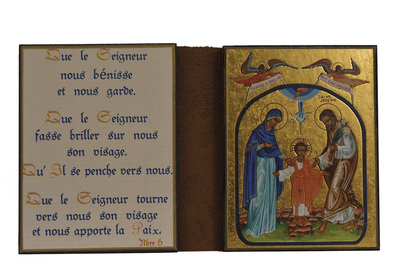 Que le Seigneur
nous bénisse
et nous garde.
Que le Seigneur
fasse briller sur nous
son visage.
Qu'Il se penche vers nous.
Que le Seigneur tourne
vers nous son visage
et nous apporte la Paix.
Nbre 6